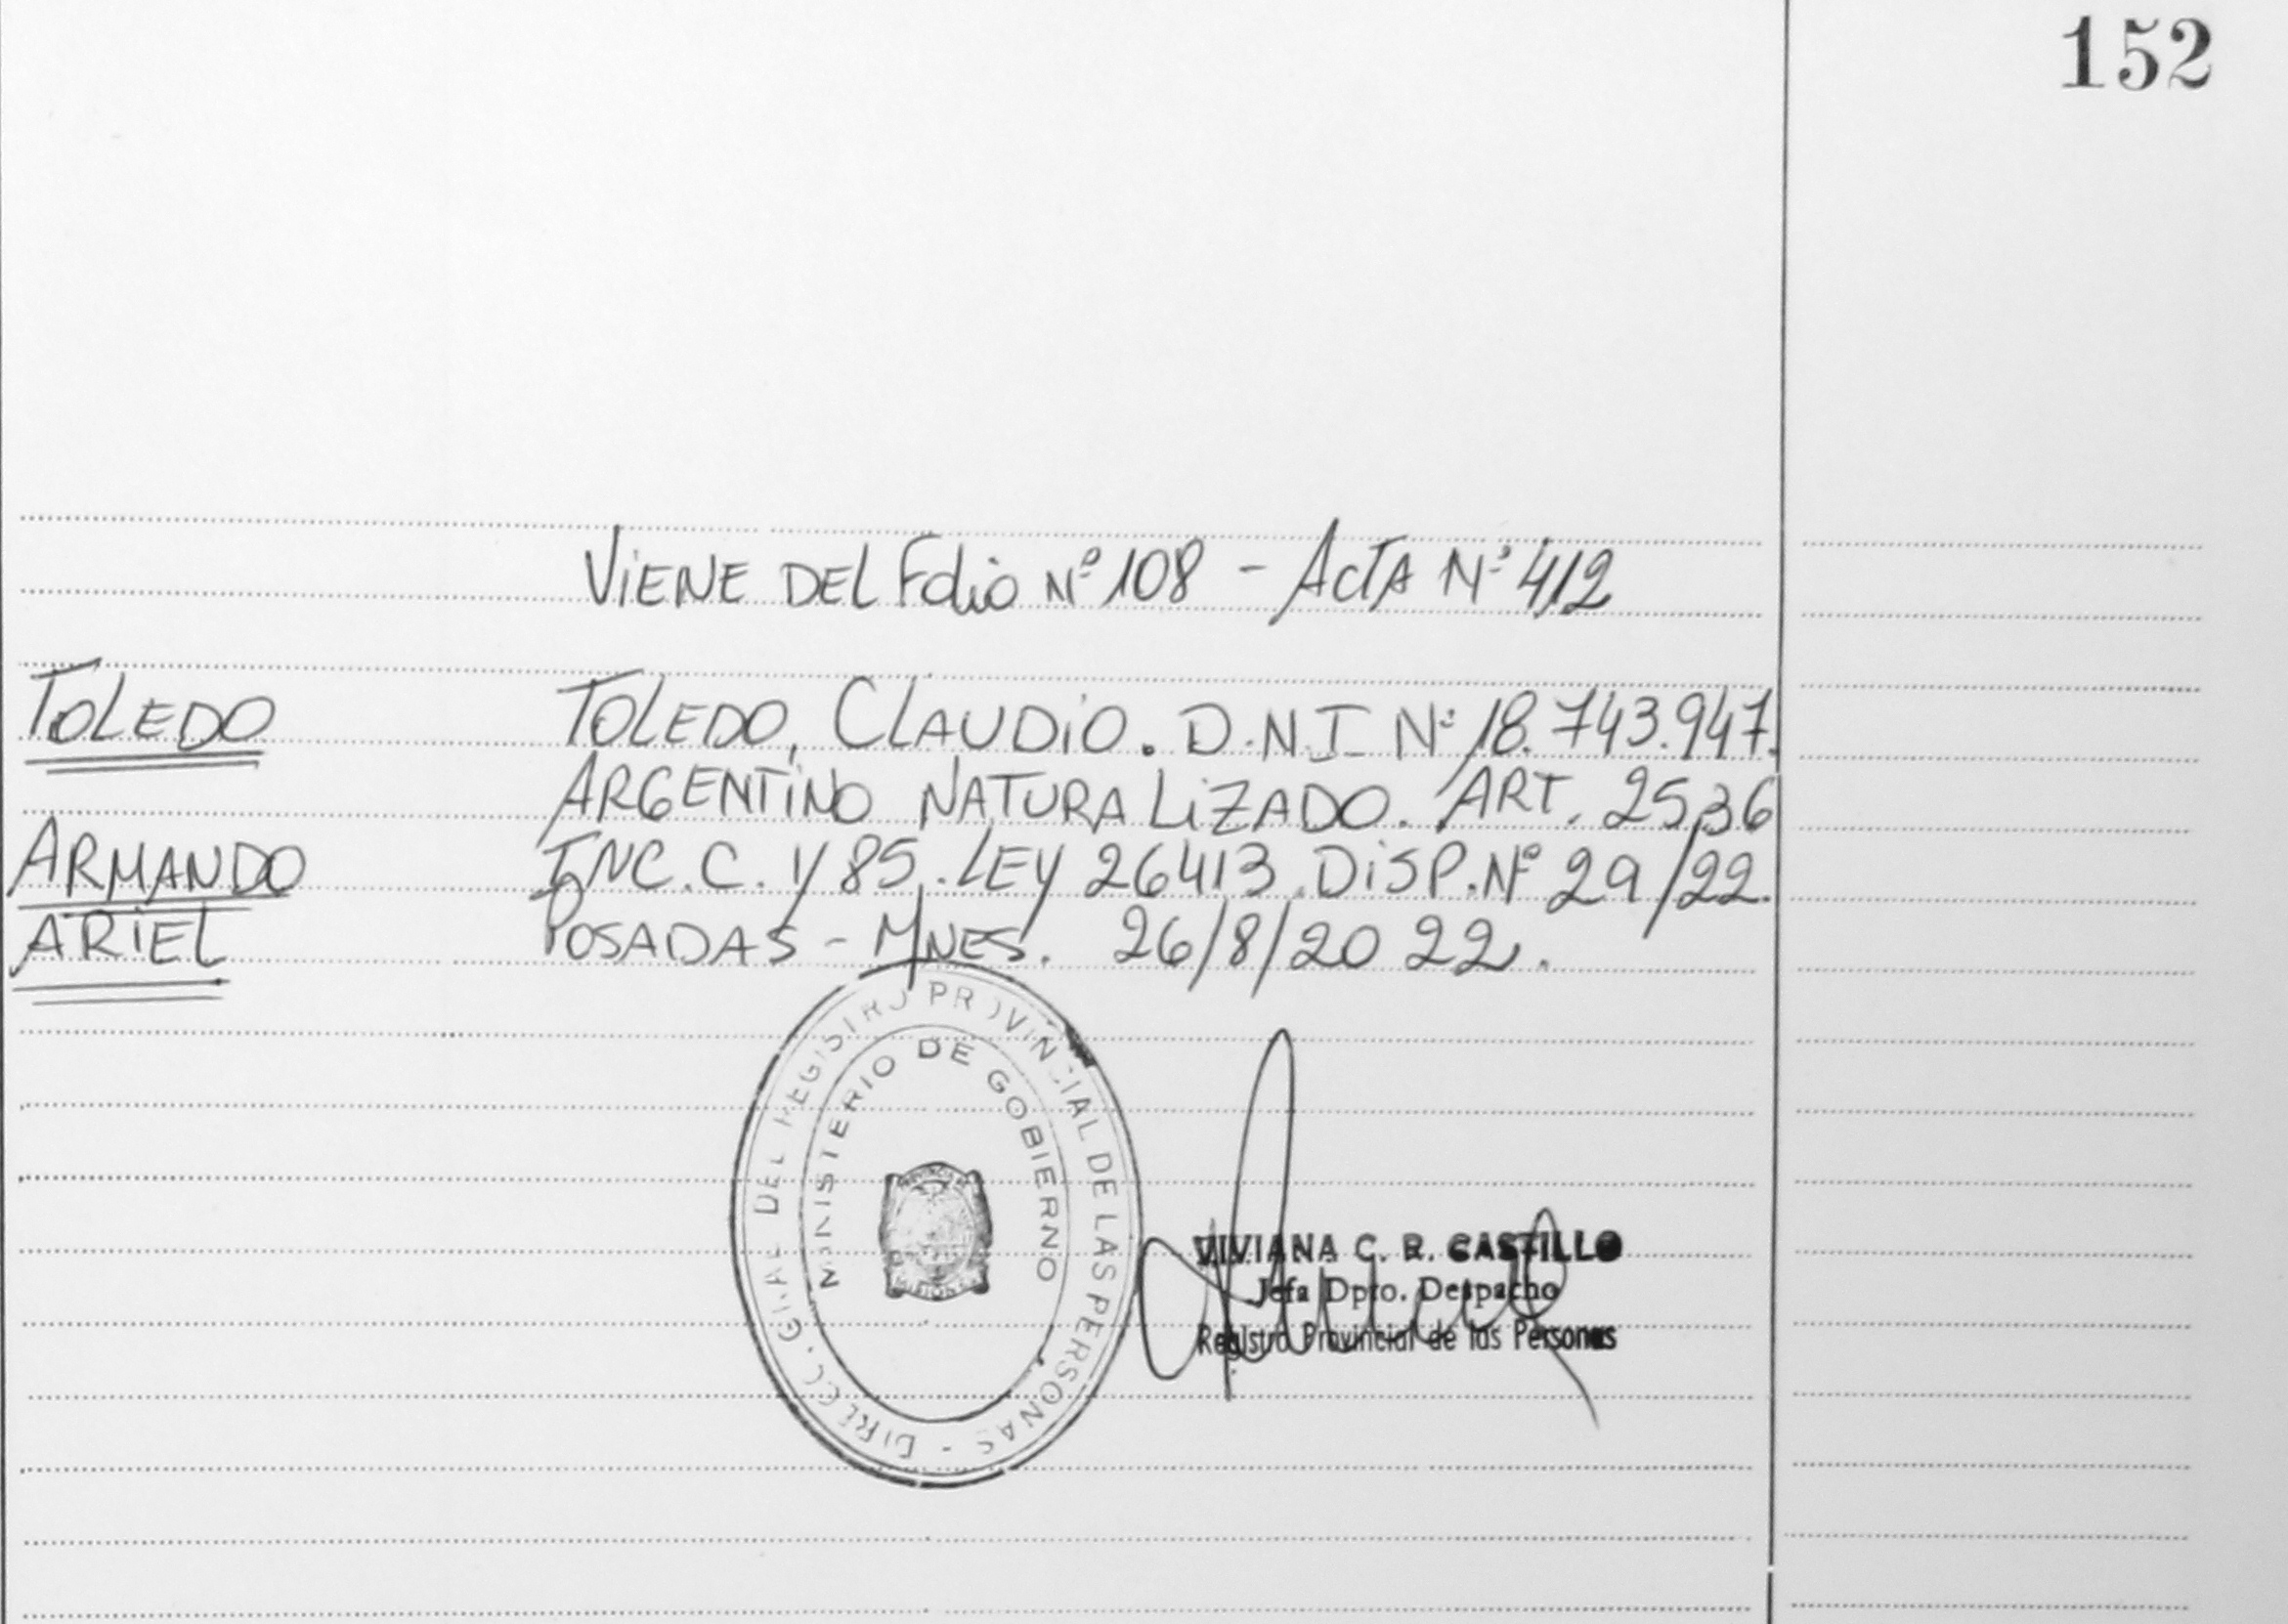 152
VIENE DEL Folio Nº 108 - ACTA Nº 412
TOLEDO
TOLEDO, CLAUDIO. D.N.I Nº 18.743.947.
ARGENTINO NATURALIZADO. ART. 25,36
ARMANDO
INC.C. Y 85. LEY 26413. DISP. Nº 29/22.
ARIEL
POSADAS - MNES. 26/8/2022.
DIRECC. GRAL DEL REGISTRO PROVINCIAL DE LAS PERSONAS -
MINISTERIO DE GOBIERNO
VIVIANA C. R. CASTILLO
Jefa Dpto. Despacho
Registro Provincial de las Personas